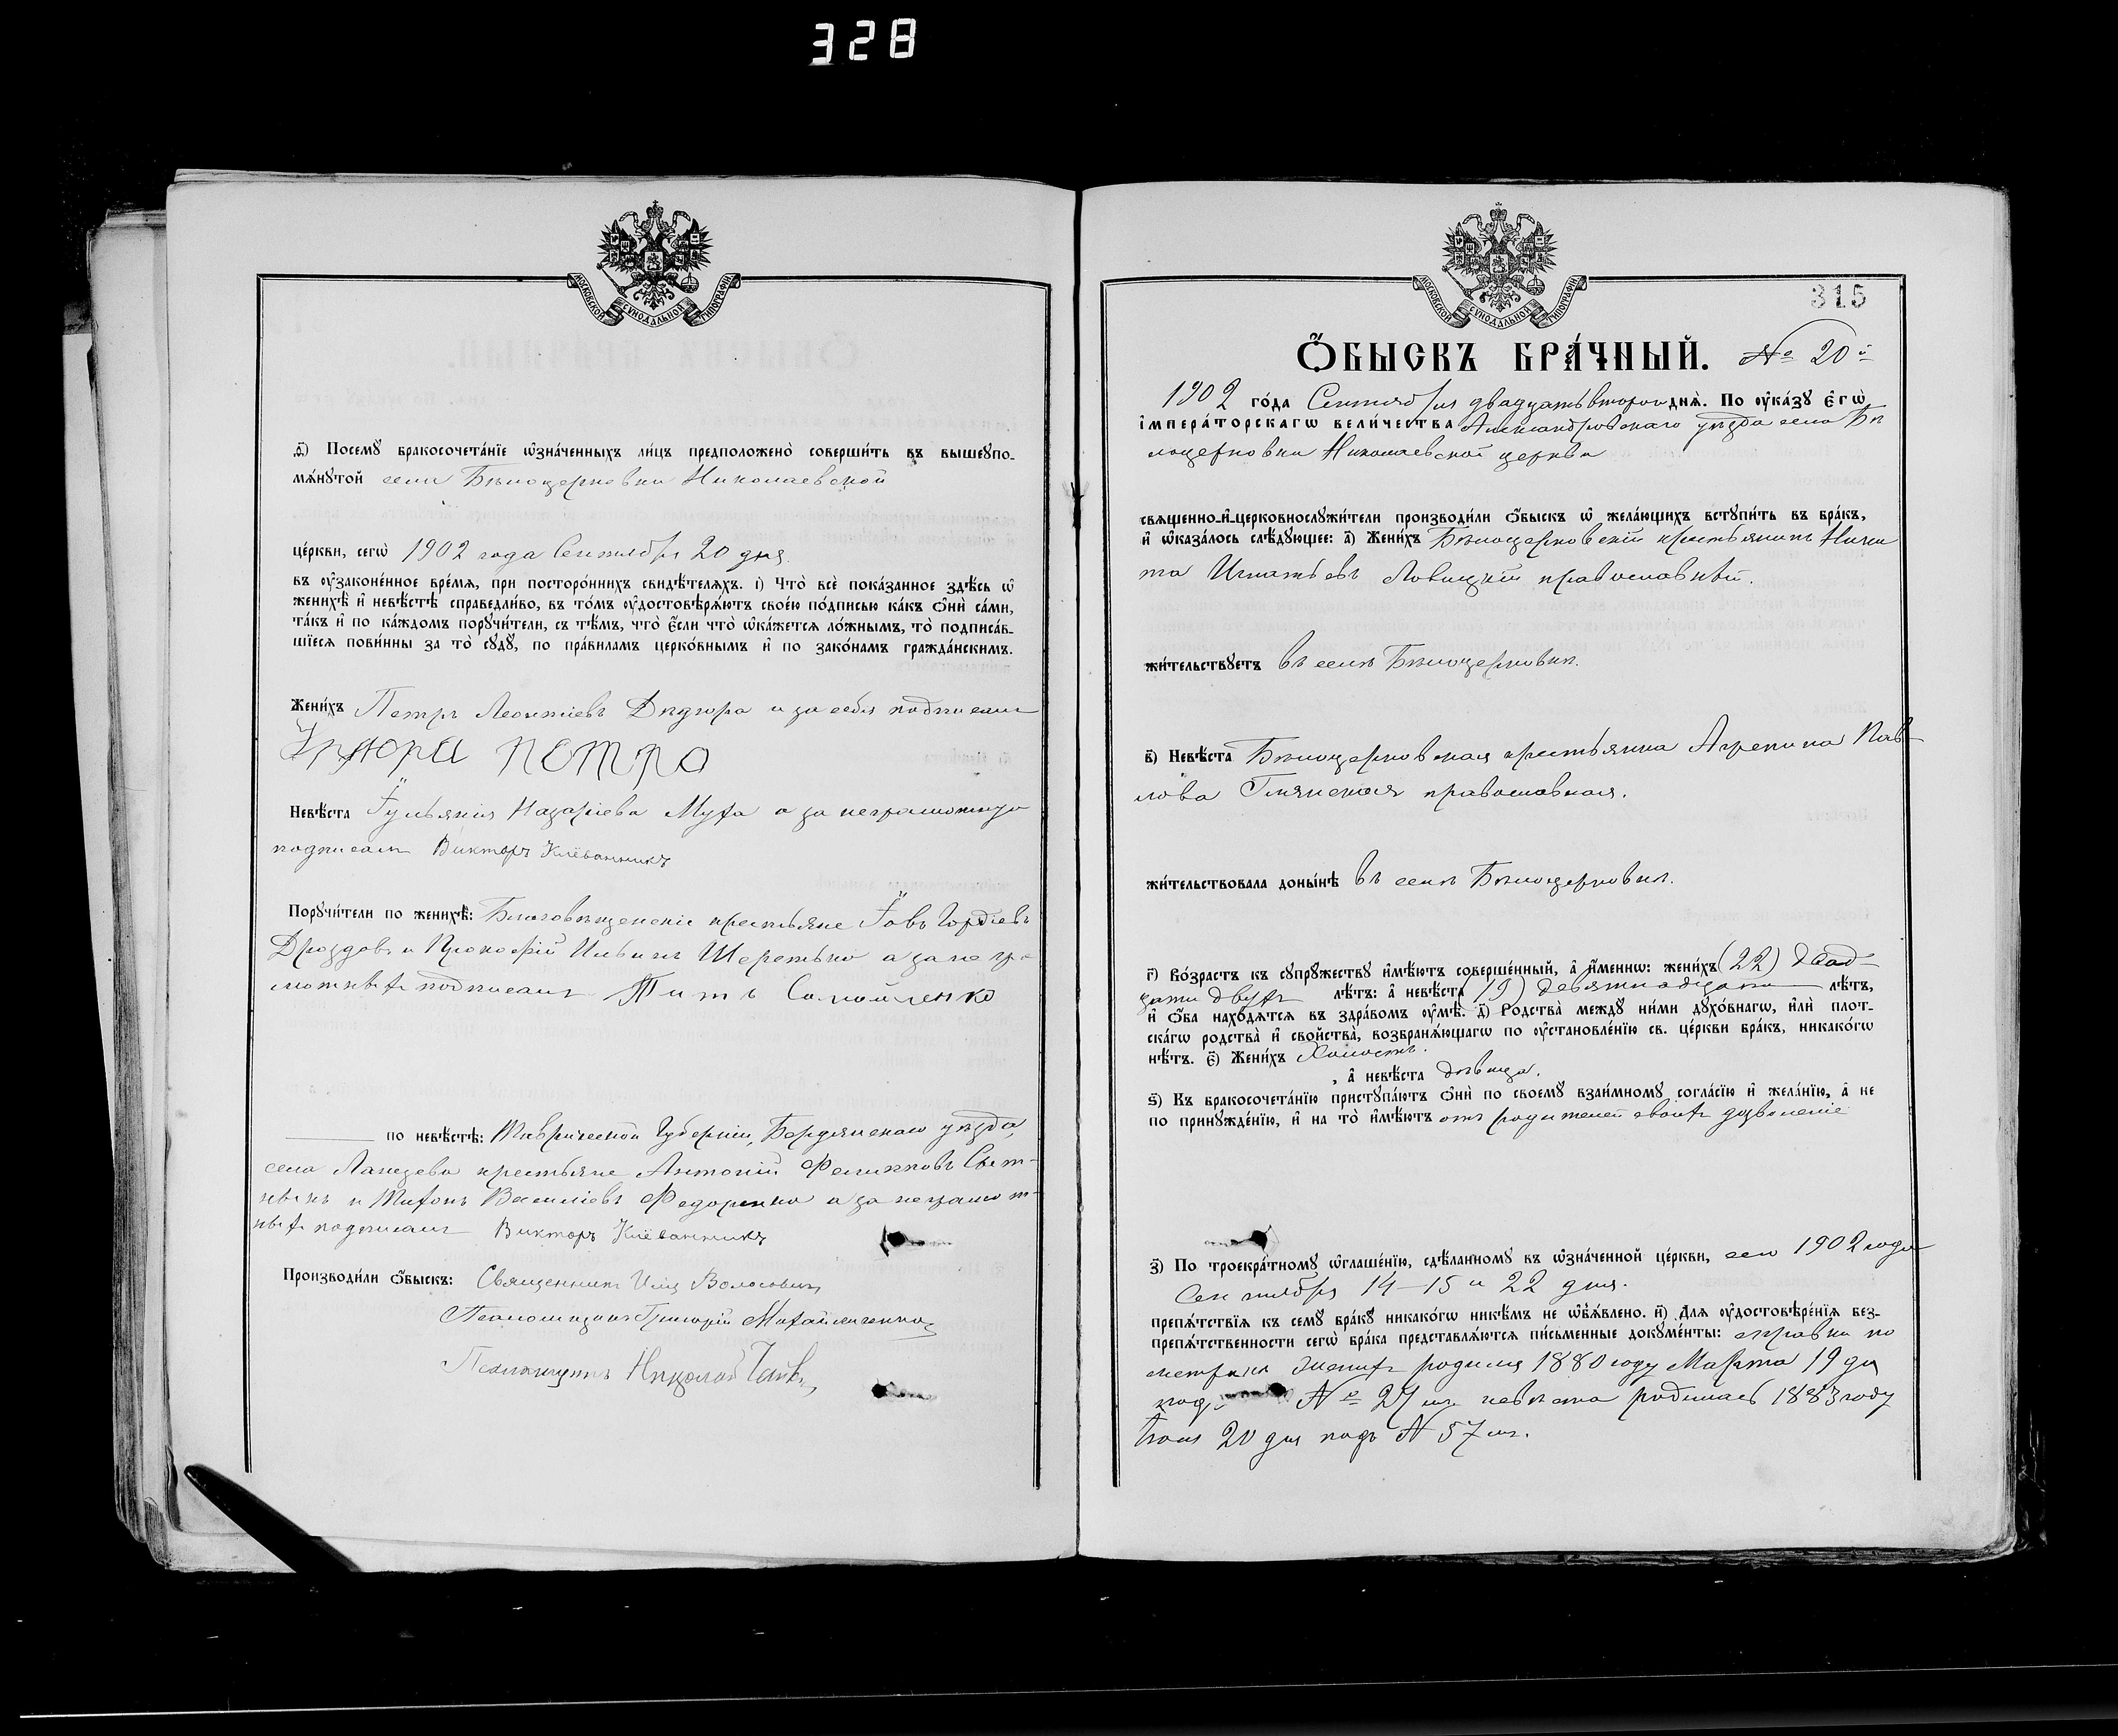 328
МОСКОВСКОЙ СѴНОДАЛЬНОЙ ТИПОГРАФІИ
ѳ҃) Посемꙋ̀ бракосочета́нїе ѡ҆зна́ченныхъ ли́цъ предположено̀ соверши́ть въ вышеꙋпо-
мѧ́нꙋтой села Бѣлоцерковки Николаевской
це́ркви, сегѡ̀ 1902 года Сентября 20 дня
въ ᲂу҆законе́нное вре́мѧ, при посторо́ннихъ свидѣ́телѧхъ. і҃) Что̀ всѐ пока́занное здѣ́сь ѡ҆
женихѣ̀ и҆ невѣ́стѣ справедли́во, въ то́мъ ᲂу҆достовѣрѧ́ютъ свое́ю по́дписью ка́къ ѻ҆нѝ са́ми,
та́къ и҆ по ка́ждомъ порꙋчи́тели, съ тѣ́мъ, что̀ є҆́сли что̀ ѡ҆ка́жетсѧ ло́жнымъ, то̀ подписа́в-
шїесѧ пови́нны за то̀ сꙋдꙋ̀, по пра́виламъ церко́внымъ и҆ по зако́намъ гражда́нскимъ.
Жени́хъ Петръ Леонтіевъ Дядюра и за себя подписалъ
Петро
Невѣ́ста Іульянія Назаріева Муха а за неграмотную
подписалъ Викторъ Клёванникъ
Порꙋчи́тели по женихѣ̀: Благовѣщенскіе крестьяне Іовъ Гордіевъ
Дроздовъ и Прокофій Ильинъ Шеретько а за негра-
мотныхъ подписалъ Титъ Самойленко
по невѣ́стѣ: Таврической Губерніи, Бердянскаго уѣзда,
села крестьяне Антоній Филипповъ Сыт-
никъ и Тихонъ Василіевъ Федоренко а за неграмот-
ныхъ подписалъ Викторъ Клёванникъ
Производи́ли ѻ҆́быскъ: Священникъ Илія Волосовичъ
Псаломщикъ Григорій Михайличенко
Николай
МОСКОВСКОЙ СѴНОДАЛЬНОЙ ТИПОГРАФІИ
315
Ѻ҆́БЫСКЪ БРА́ЧНЫЙ. № 20й
1902 го́да Сентября двадцать второго днѧ̀. По ᲂу҆ка́зꙋ є҆гѡ̀
і҆мпера́торскагѡ вели́чества Александровскаго уѣзда села Бѣ
лоцерковки Николаевской церкви
свѧщенно-и҆-церковнослꙋжи́тели производи́ли ѻ҆́быскъ ѡ҆ жела́ющихъ встꙋпи́ть въ бра́къ,
и҆ ѡ҆каза́лось слѣ́дꙋющее: а҃) Жени́хъ Бѣлоцерковскій крестьянинъ Ники
та Игнатьевъ Ловицкій православный.
жи́тельствꙋетъ въ селѣ Бѣлоцерковкѣ.
в҃) Невѣ́ста Бѣлоцерковская крестьянка Агрепина Пав-
лова Глянская православная.
жи́тельствовала доны́нѣ въ селѣ Бѣлоцерковкѣ.
г҃) Во́зрастъ къ сꙋпрꙋ́жествꙋ и҆мѣ́ютъ соверше́нный, а҆ и҆́меннѡ: жени́хъ (22) двад-
цати двухъ лѣ́тъ: а҆ невѣ́ста (19) девятнадцати лѣ́тъ,
и҆ ѻ҆́ба нахо́дѧтсѧ въ здра́вомъ ᲂу҆мѣ̀. д҃) Родства̀ междꙋ̀ ни́ми дꙋхо́внагѡ, и҆лѝ плот-
ска́гѡ родства̀ и҆ сво́йства, возбранѧ́ющагѡ по ᲂу҆становле́нїю св. це́ркви бра́къ, никако́гѡ
нѣ́тъ. є҃) Жени́хъ Холостъ.
, а҆ невѣ́ста дѣвица.
ѕ҃) Къ бракосочета́нїю пристꙋпа́ютъ ѻ҆нѝ по своемꙋ̀ взаи́мномꙋ согла́сїю и҆ жела́нїю, а҆ не
по принꙋжде́нїю, и҆ на то̀ и҆мѣ́ютъ отъ родителей своихъ дозволеніе
з҃) По троекра́тномꙋ ѡ҆глаше́нїю, сдѣ́ланномꙋ въ ѡ҆зна́ченной це́ркви, сего 1902 года
Сентября 14-15 и 22 дня.
препѧ́тствїѧ къ семꙋ̀ бра́кꙋ никако́гѡ никѣ́мъ не ѡ҆б̾ѧ́влено. и҃) Длѧ ᲂу҆достовѣре́нїѧ без-
препѧ́тственности сегѡ̀ бра́ка представлѧ́ютсѧ пи́сьменные докꙋме́нты: справки по
метрикѣ женихъ родился 1880 году Марта 19 дн
подъ № 27 мъ невѣста родилась 1883 году
Іюля 20 дня подъ № 57 мъ.